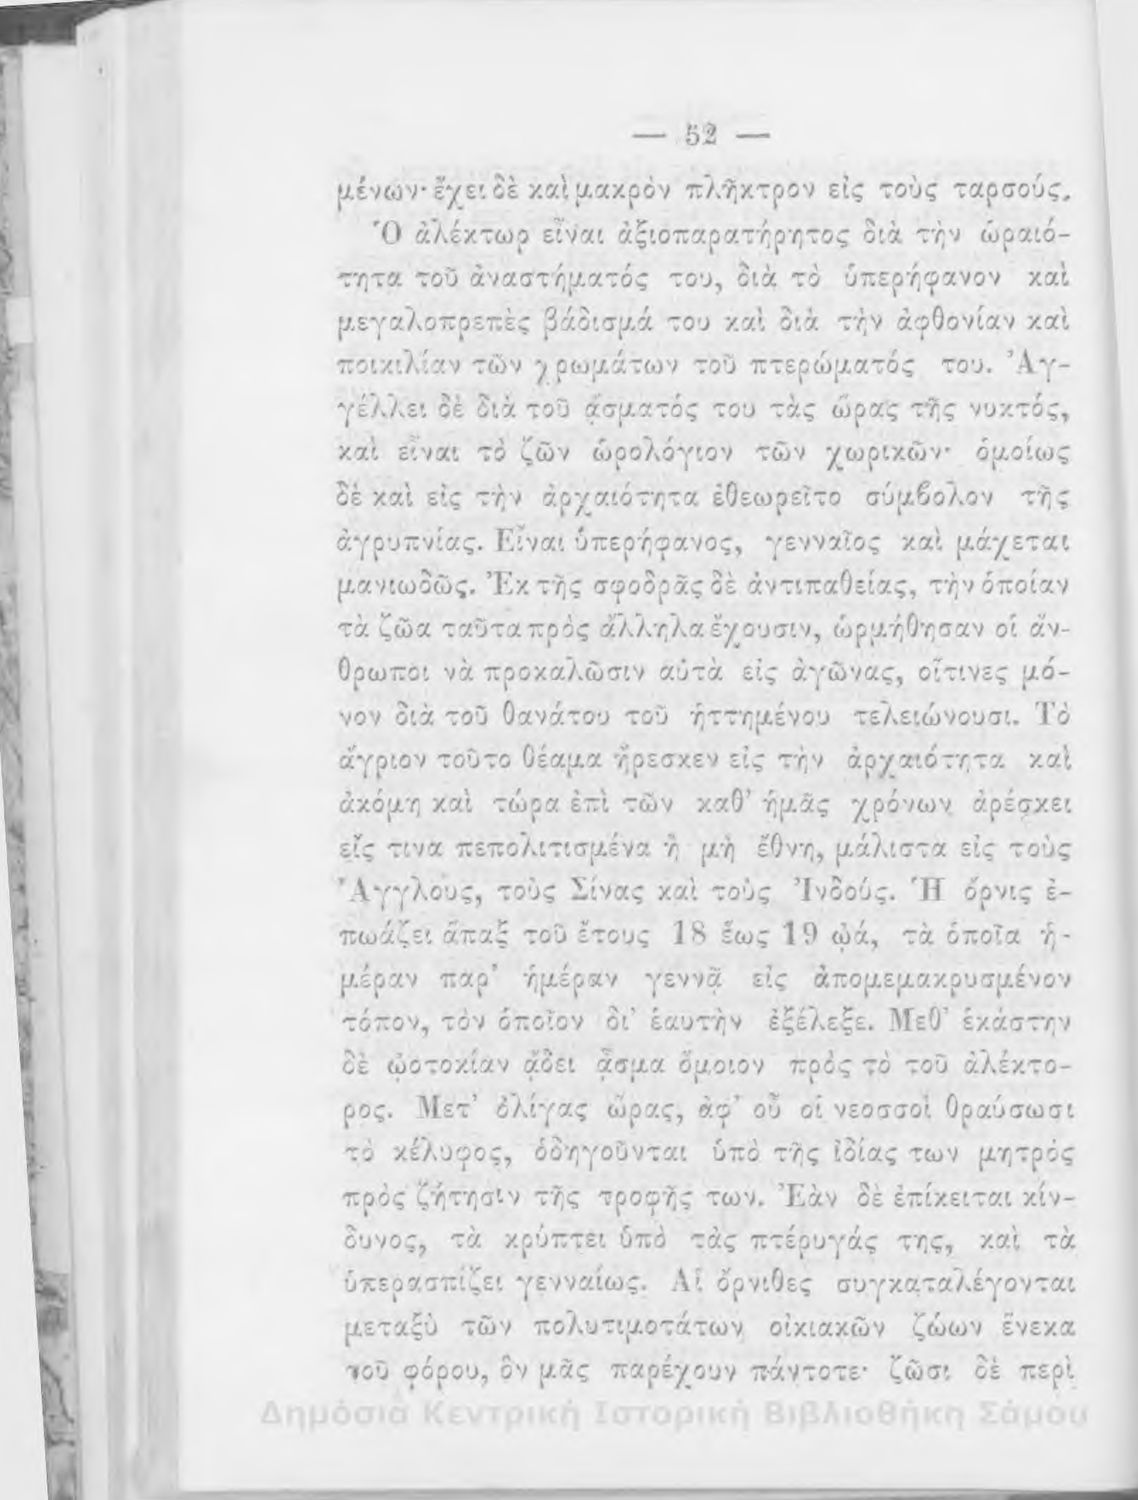 — 52 —
μένων· ἔχει δὲ καὶ μακρὸν πλῆκτρον εἰς τοὺς ταρσούς.
Ὁ ἀλέκτωρ εἶναι ἀξιοπαρατήρητος διὰ τὴν ὡραιό-
τητα τοῦ ἀναστήματός του, διὰ τὸ ὑπερήφανον καὶ
μεγαλοπρεπὲς βάδισμά του καὶ διὰ τὴν ἀφθονίαν καὶ
ποικιλίαν τῶν χρωμάτων τοῦ πτερώματός του. Ἀγ-
γέλλει δὲ διὰ τοῦ ᾄσματός του τὰς ὥρας τῆς νυκτός,
καὶ εἶναι τὸ ζῶν ὡρολόγιον τῶν χωρικῶν· ὁμοίως
δὲ καὶ εἰς τὴν ἀρχαιότητα ἐθεωρεῖτο σύμβολον τῆς
ἀγρυπνίας. Εἶναι ὑπερήφανος, γενναῖος καὶ μάχεται
μανιωδῶς. Ἐκ τῆς σφοδρᾶς δὲ ἀντιπαθείας, τὴν ὁποίαν
τὰ ζῶα ταῦτα πρὸς ἄλληλα ἔχουσιν, ὡρμήθησαν οἱ ἄν-
θρωποι νὰ προκαλῶσιν αὐτὰ εἰς ἀγῶνας, οἵτινες μό-
νον διὰ τοῦ θανάτου τοῦ ἡττημένου τελειώνουσι. Τὸ
ἄγριον τοῦτο θέαμα ἤρεσκεν εἰς τὴν ἀρχαιότητα καὶ
ἀκόμη καὶ τώρα ἐπὶ τῶν καθ’ ἡμᾶς χρόνων ἀρέσκει
εἴς τινα πεπολιτισμένα ἢ μὴ ἔθνη, μάλιστα εἰς τοὺς
Ἄγγλους, τοὺς Σίνας καὶ τοὺς Ἰνδούς. Ἡ ὄρνις ἐ-
πωάζει ἅπαξ τοῦ ἔτους 18 ἕως 19 ᾠά, τὰ ὁποῖα ἡ-
μέραν παρ’ ἡμέραν γεννᾷ εἰς ἀπομεμακρυσμένον
τόπον, τὸν ὁποῖον δι’ ἑαυτὴν ἐξέλεξε. Μεθ’ ἑκάστην
δὲ ᾠοτοκίαν ᾄδει ᾆσμα ὅμοιον πρὸς τὸ τοῦ ἀλέκτο-
ρος. Μετ’ ὀλίγας ὥρας, ἀφ’ οὗ οἱ νεοσσοὶ θραύσωσι
τὸ κέλυφος, ὁδηγοῦνται ὑπὸ τῆς ἰδίας των μητρὸς
πρὸς ζήτησιν τῆς τροφῆς των. Ἐὰν δὲ ἐπίκειται κίν-
δυνος, τὰ κρύπτει ὑπὸ τὰς πτέρυγάς της, καὶ τὰ
ὑπερασπίζει γενναίως. Αἱ ὄρνιθες συγκαταλέγονται
μεταξὺ τῶν πολυτιμοτάτων οἰκιακῶν ζώων ἕνεκα
τοῦ φόρου, ὃν μᾶς παρέχουν πάντοτε· ζῶσι δὲ περὶ
Δημόσια Κεντρική Ιστορική Βιβλιοθήκη Σάμου